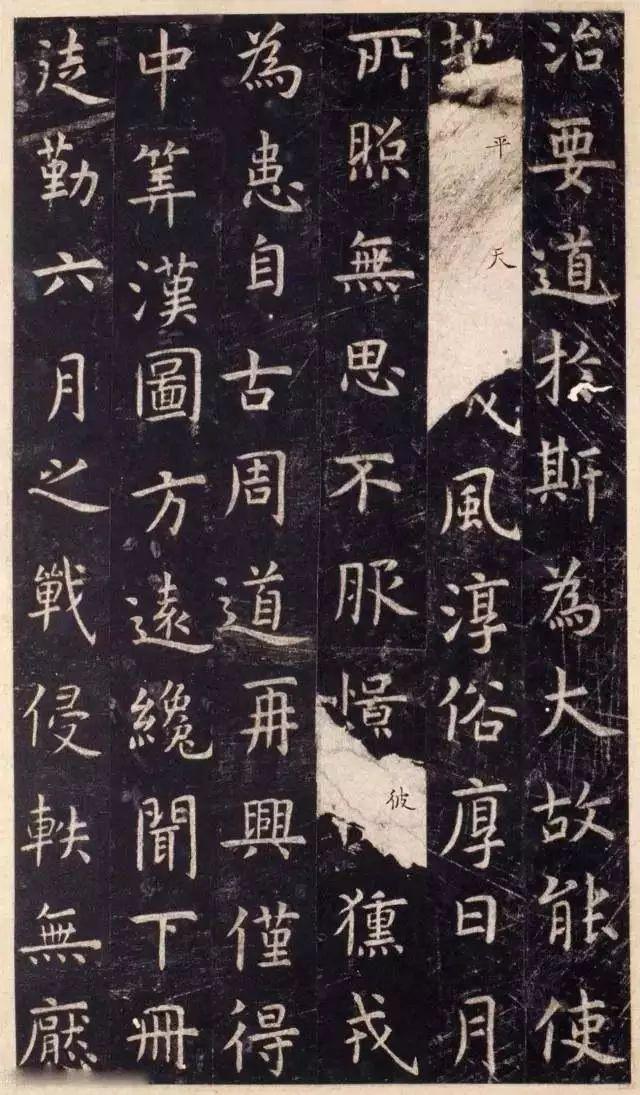 治要道扵斯為大故能使
地平天成風淳俗厚日月
所照無思不服慣彼獯戎
為患自古周道再興僅得
中筭漢圖方遠纔聞下冊
徒勤六月之戰侵軼無厭